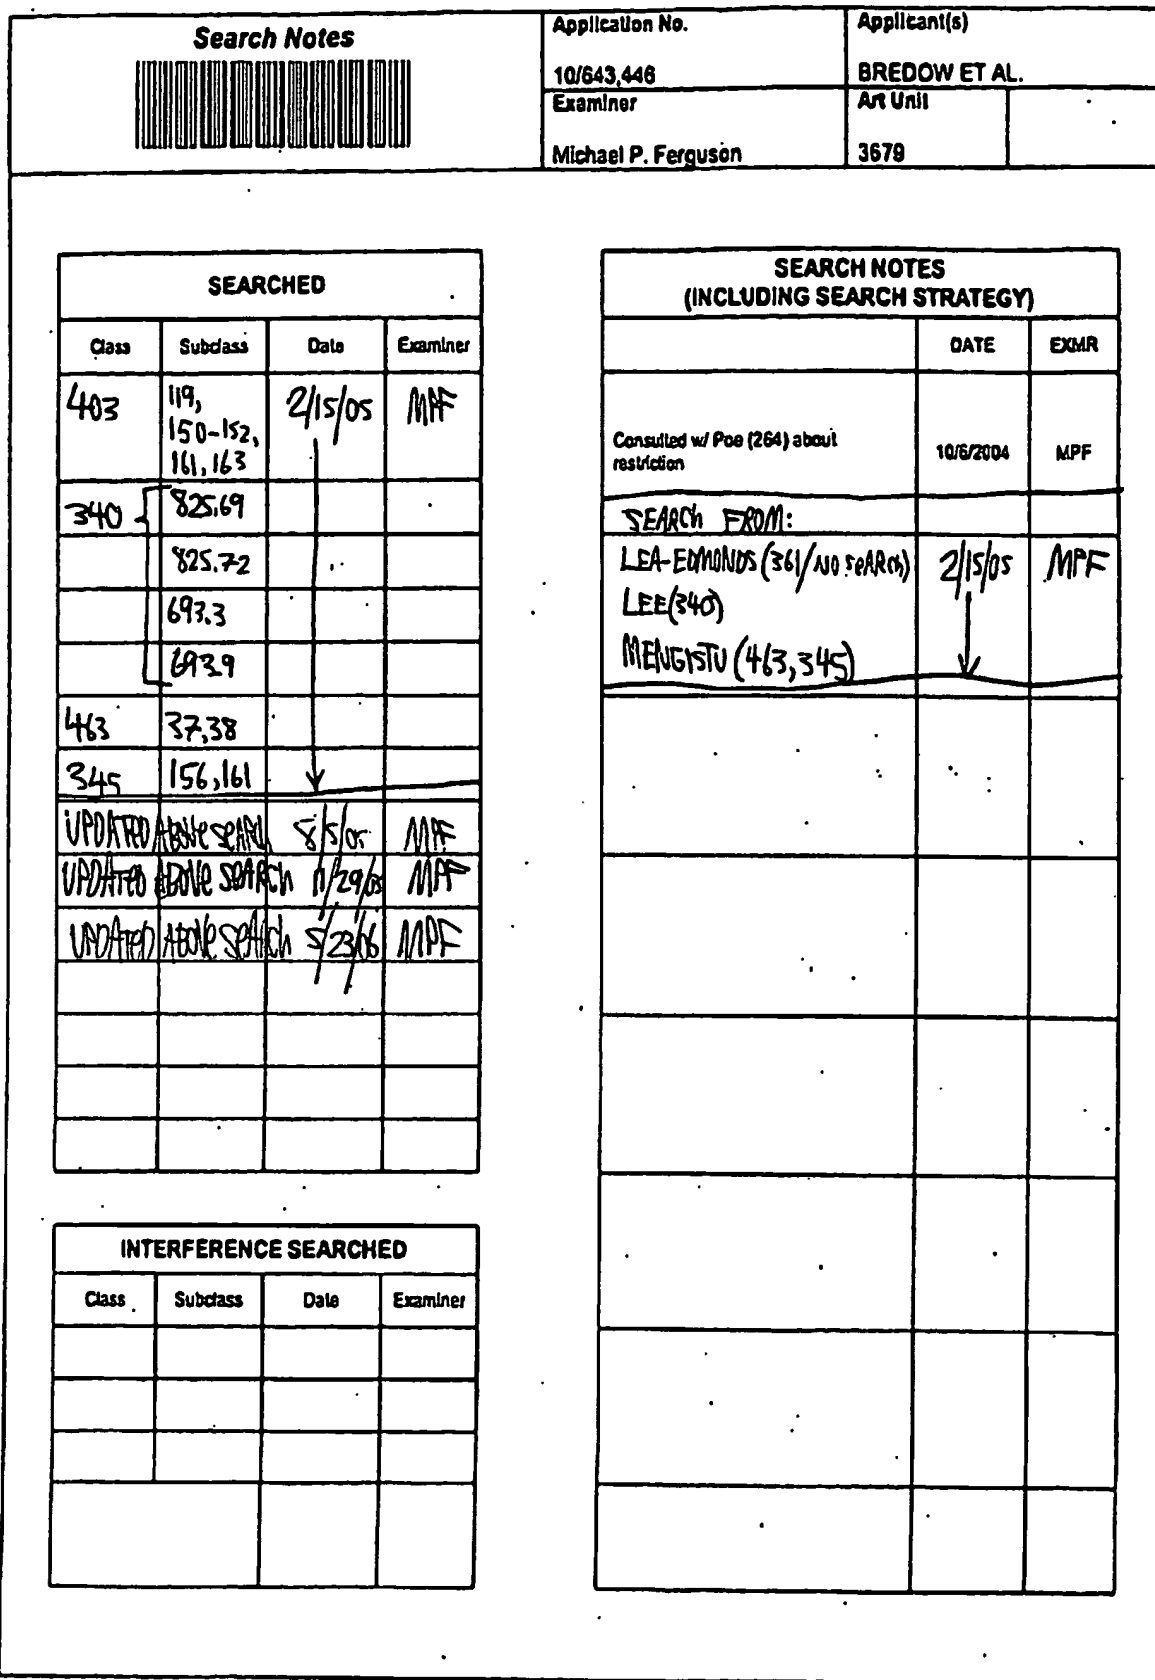 Search Notes
Application No.
10/643,446
Applicant(s)
BREDOW ET AL.
Examiner
Michael P. Ferguson
Art Unit
3679
SEARCHED
Class Subclass Date Examiner
403 119, 2/15/05 MPF
150-152,
161, 163
340 825.69
825.72
693.3
693.9
463 37,38
345 156,161
UPDATED ABOVE SEARCH 8/5/05 MPF
UPDATED ABOVE SEARCH 11/29/05 MPF
UPDATED ABOVE SEARCH 5/23/06 MPF
INTERFERENCE SEARCHED
Class Subclass Date Examiner
SEARCH NOTES
(INCLUDING SEARCH STRATEGY)
DATE EXMR
Consulted w/ Poe (264) about
restriction 10/6/2004 MPF
SEARCH FROM:
LEA-EDMONDS (361/NO SEARCH) 2/15/05 MPF
LEE(340)
MENGISTU (463,345)